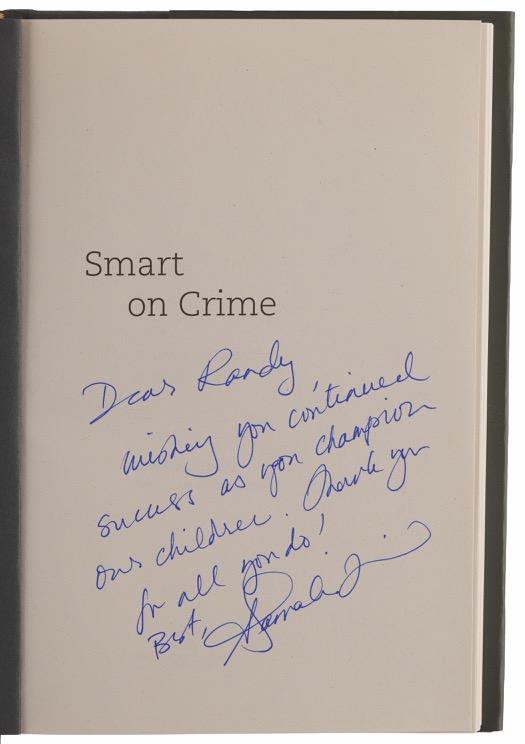 Smart
on Crime
Dear Randy,
Wishing you continued
success as you champion
our children. Thank you
for all you do!
Best, Kamala